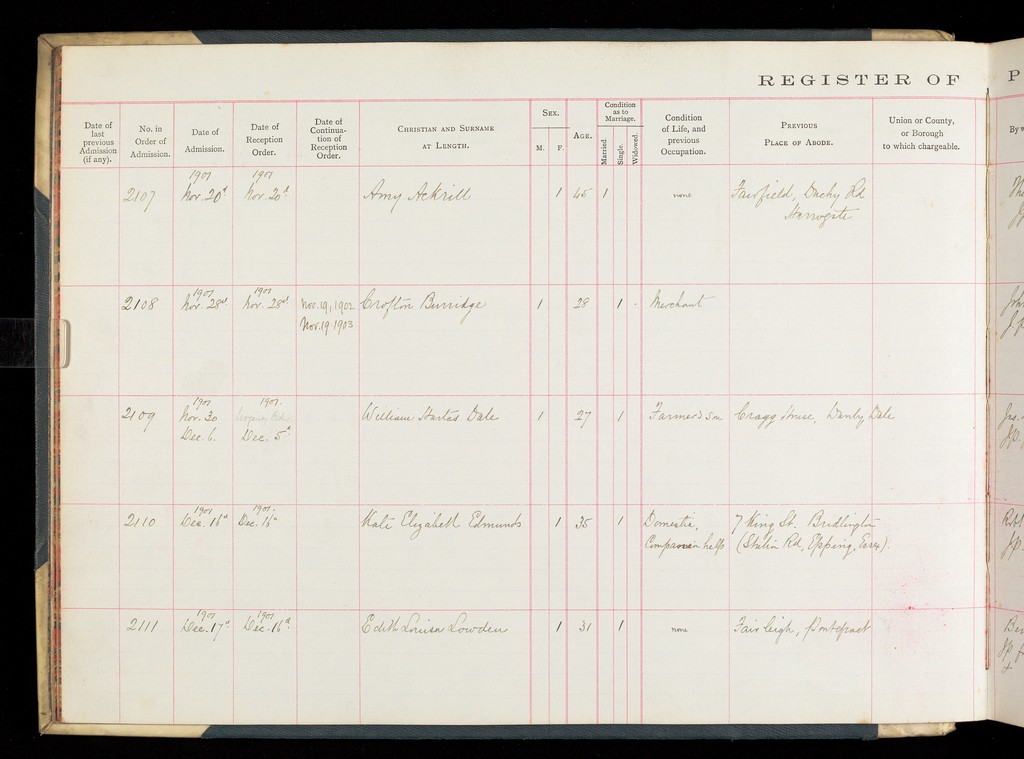 REGISTER OF
P
Date of last previous Admission (if any).
No. in Order of Admission.
Date of Admission.
Date of Reception Order.
Date of Continua-tion of Reception Order.
CHRISTIAN AND SURNAME AT LENGTH.
SEX.
M. F.
AGE.
Condition as to Marriage.
Married. Single. Widowed.
Condition of Life, and previous Occupation.
PREVIOUS PLACE OF ABODE.
Union or County, or Borough to which chargeable.
By w
1901 1901
2107 Nov. 20th Nov. 20th Amy Ackrill 1 45 1 none Fairfield, Duchy Rd
Harrogate
1901 1901
2108 Nov. 28th Nov. 28th Nov. 19, 1902 Crofton Burridge 1 28 1 - Merchant
Nov. 19 1903
1901 1901.
2109 Nov. 30 William Hartas Dale 1 27 1 Farmer's Son Cragg House, Danby Dale
Dec. 6. Dec. 5th
1901 1901.
2110 Dec. 16th Dec. 16th Kate Elizabeth Edmunds 1 35 1 Domestic, 7 King St. Bridlington
Companion help (Station Rd, Epping, Essex).
1901 1901
2111 Dec. 17th Dec. 16th Edith Louisa Lowden 1 31 1 none Fairleigh, Pontefract